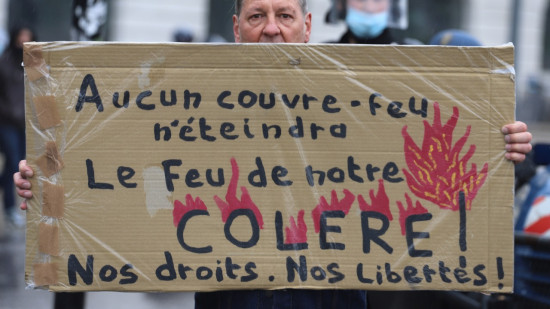 Aucun couvre-feu
n'éteindra
Le Feu de notre
COLERE!
Nos droits. Nos Libertés!